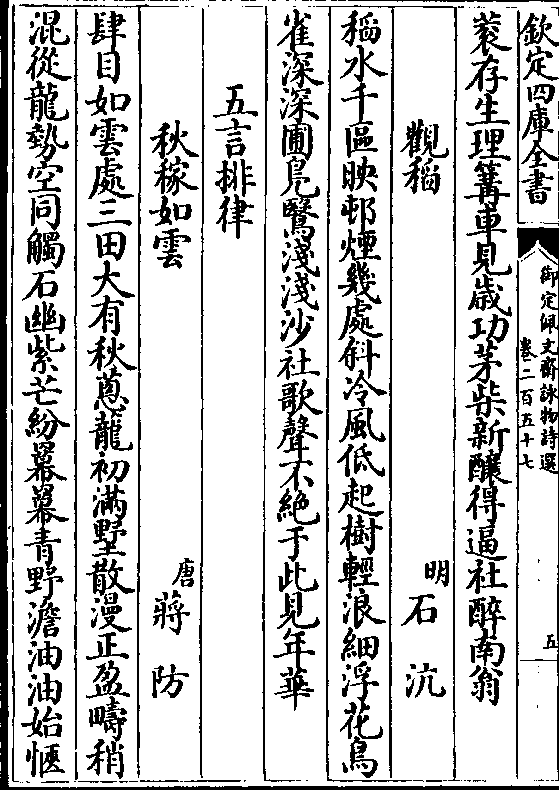 欽定四庫全書
御定佩文齋詠物詩選
卷二百五十七
五
蓑存生理篝車見歲功茅柴新釀得逼社醉南翁
觀稻 明 石沆
稻水千區映邨煙幾處斜冷風低起樹輕浪細浮花鳥
雀深深圃鳧鷖淺淺沙社歌聲不絕于此見年華
五言排律
秋稼如雲 唐 蔣防
肆目如雲處三田大有秋蔥龍初滿墅散漫正盈疇稍
混從龍勢空同觸石幽紫芒紛冪冪青野澹油油始愜